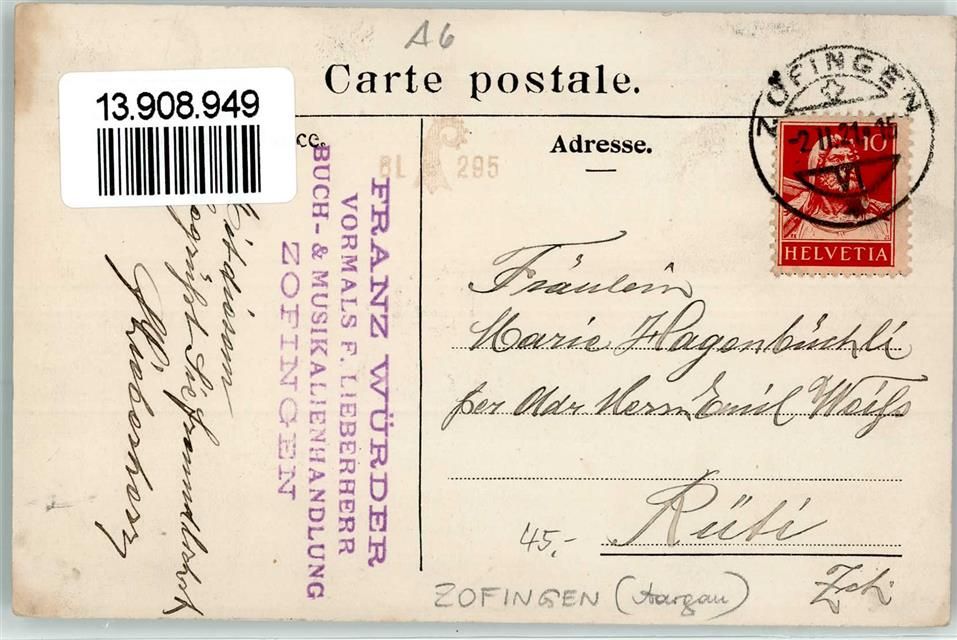 A6
Carte postale.
13.908.949
ce.
Adresse.
BL 295
ZOFINGEN
-2.II.21.-15
VI
10
HELVETIA
FRANZ WÜRDER
VORMALS F. LIEBERHERR
BUCH- & MUSIKALIENHANDLUNG
ZOFINGEN
Mit diesem
Sie
Fräulein
Marie Hagenbüchli
per Adr Herrn Emil Weiss
Rüti
Zch
45.-
ZOFINGEN (Aargau)